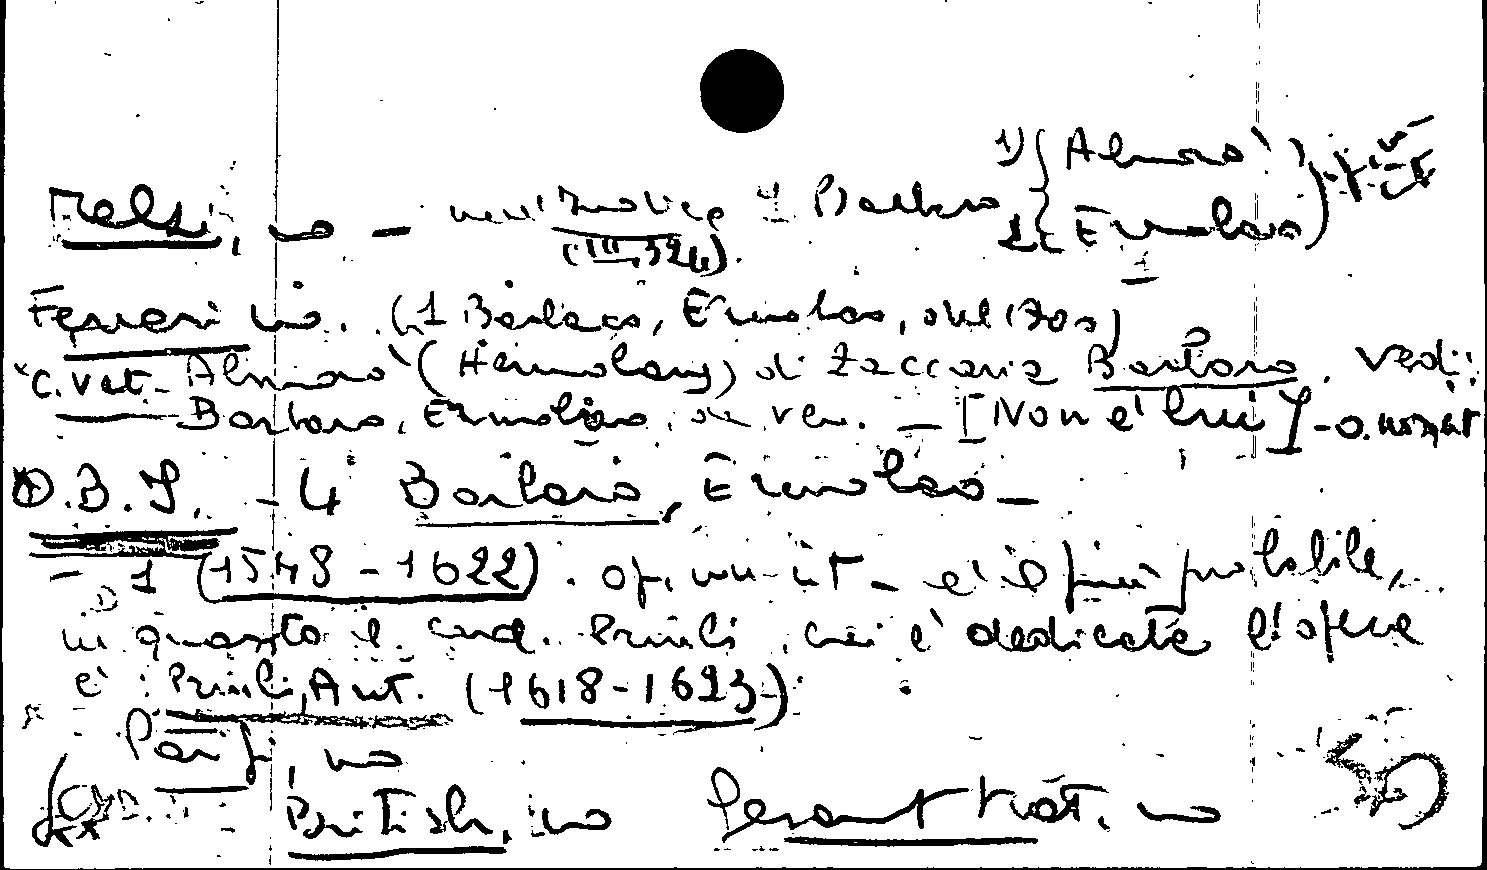 1) { Almorò
Melzi, no - nell'Indice 1 Barbaro 2 { Ermolao)
(III, 324).
Ferrari no. (1 Barbaro, Ermolao, del 1700)
C. Vat- Almorò (Hermolaus) di Zaccaria Barbaro. Vedi:
Barbaro, Ermolao, ven. - [Non è lui] -
D.B.I. - 4 Barbaro, Ermolao -
- 1 (1548-1622). op. non cit - è il più probabile,
in quanto il card. Priuli, cui è dedicata l'opera
è: Priuli, Ant. (1618-1623)
Parigi, no
British, no Gesamtkat. no